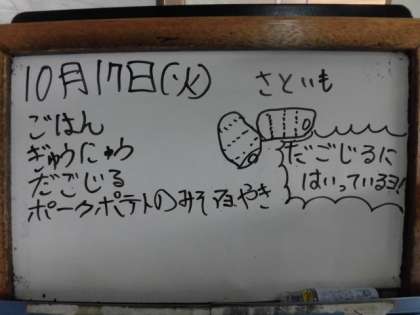 10月17日(火)
ごはん
ぎゅうにゅう
だごじる
ポークポテトのみそマヨやき
さといも
だごじるに
はいっているヨ!